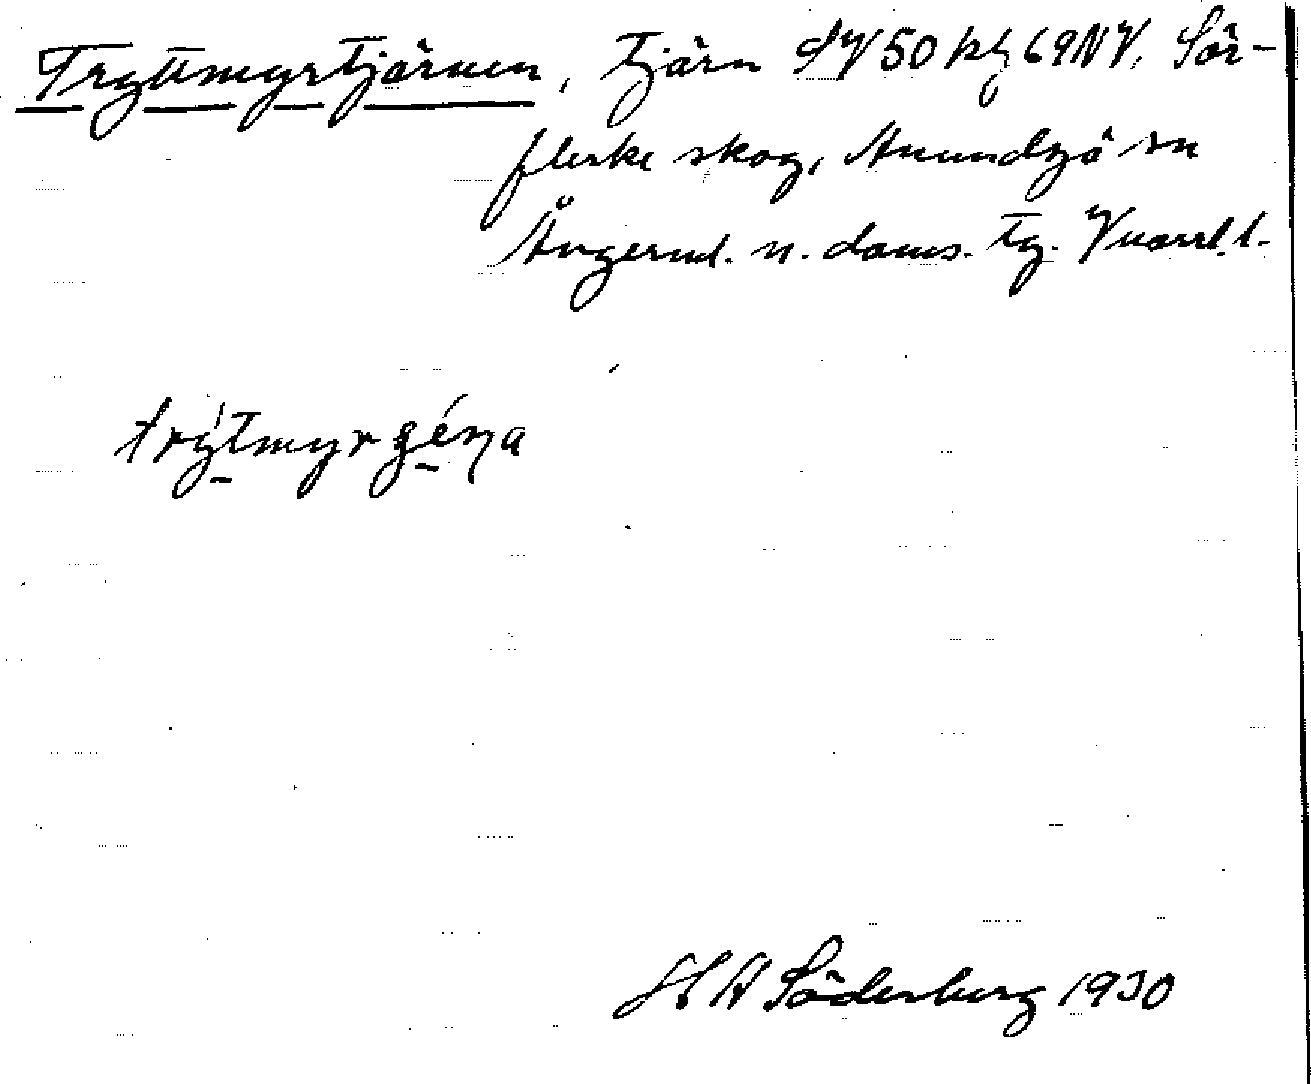 Tryttmyrtjärnen, tjärn SV 50 kbl 69 NV. Sör-
flerke skog, Anundsjö sn
Ångerml. n. doms. tg.
trýtmyrgéṇa
H A Söderberg 1930